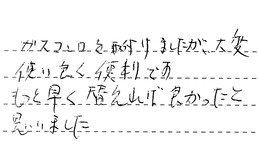 ガスコンロを取付けましたが、大変
使い良く便利です
もっと早く替えれば良かったと
思いました